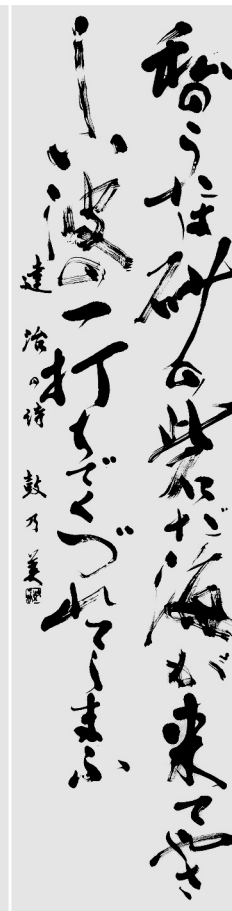 私のうたは砂の砦だ海が来てやさ
しい波の一打ちでくづれてしまふ
達治の詩 鼓乃美